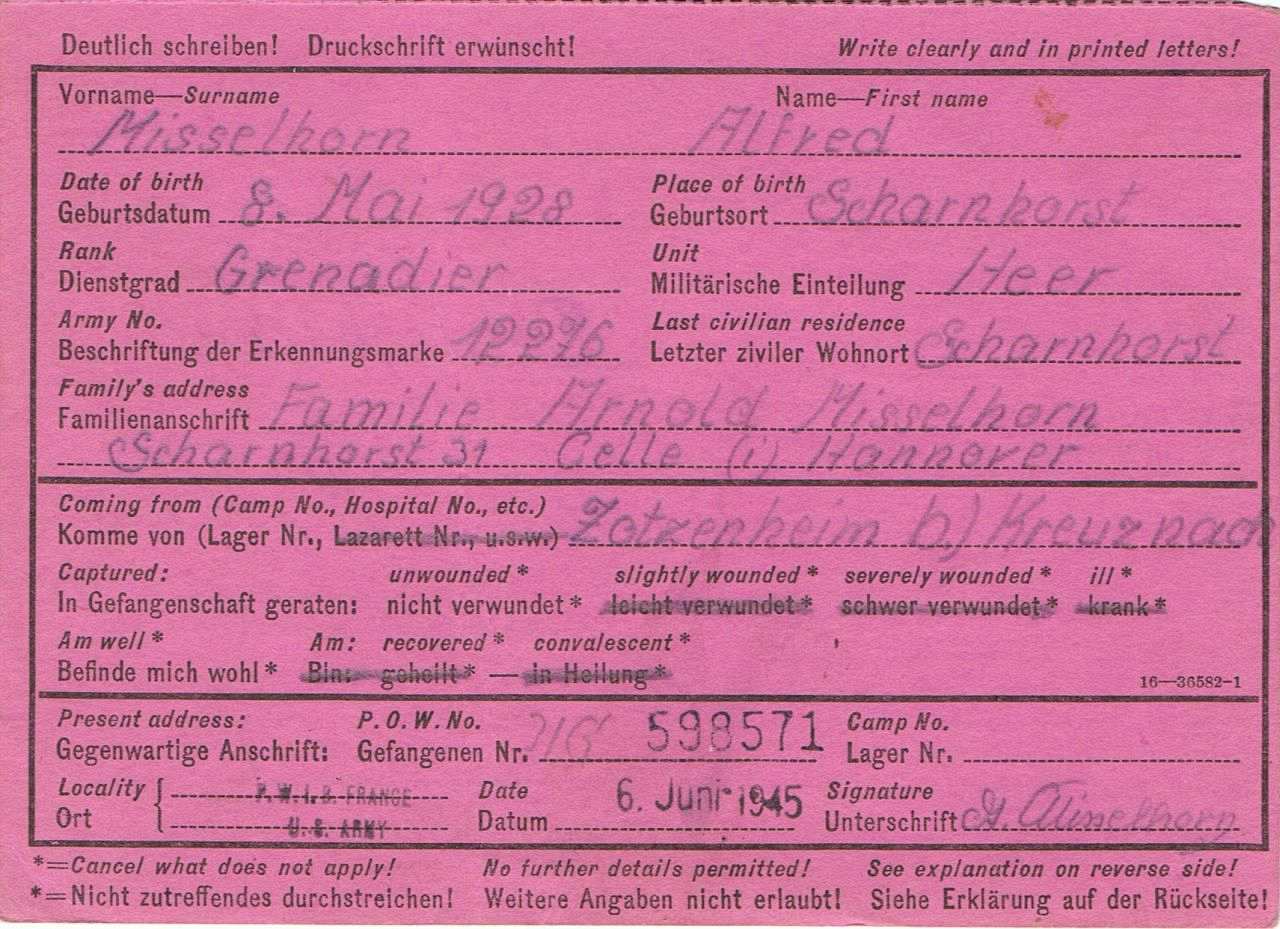 Deutlich schreiben! Druckschrift erwünscht! Write clearly and in printed letters!
Vorname—Surname Name—First name
Misselhorn Alfred
Date of birth Place of birth
Geburtsdatum 8. Mai 1928 Geburtsort Scharnhorst
Rank Unit
Dienstgrad Grenadier Militärische Einteilung Heer
Army No. Last civilian residence
Beschriftung der Erkennungsmarke 12276 Letzter ziviler Wohnort Scharnhorst
Family's address
Familienanschrift Familie Arnold Misselhorn
Scharnhorst 31 Celle (i) Hannover
Coming from (Camp No., Hospital No., etc.)
Komme von (Lager Nr., Lazarett Nr., u.s.w.) Zotzenheim b.) Kreuznach
Captured: unwounded* slightly wounded* severely wounded* ill*
In Gefangenschaft geraten: nicht verwundet* leicht verwundet* schwer verwundet* krank*
Am well* Am: recovered* convalescent*
Befinde mich wohl* Bin: geheilt* — in Heilung*
16—36582-1
Present address: P.O.W. No. Camp No.
Gegenwartige Anschrift: Gefangenen Nr. 31G 598571 Lager Nr.
Locality P.W.I.B. FRANCE Date 6. Juni 1945 Signature
Ort U.S. ARMY Datum Unterschrift A. Misselhorn
*=Cancel what does not apply! No further details permitted! See explanation on reverse side!
*=Nicht zutreffendes durchstreichen! Weitere Angaben nicht erlaubt! Siehe Erklärung auf der Rückseite!